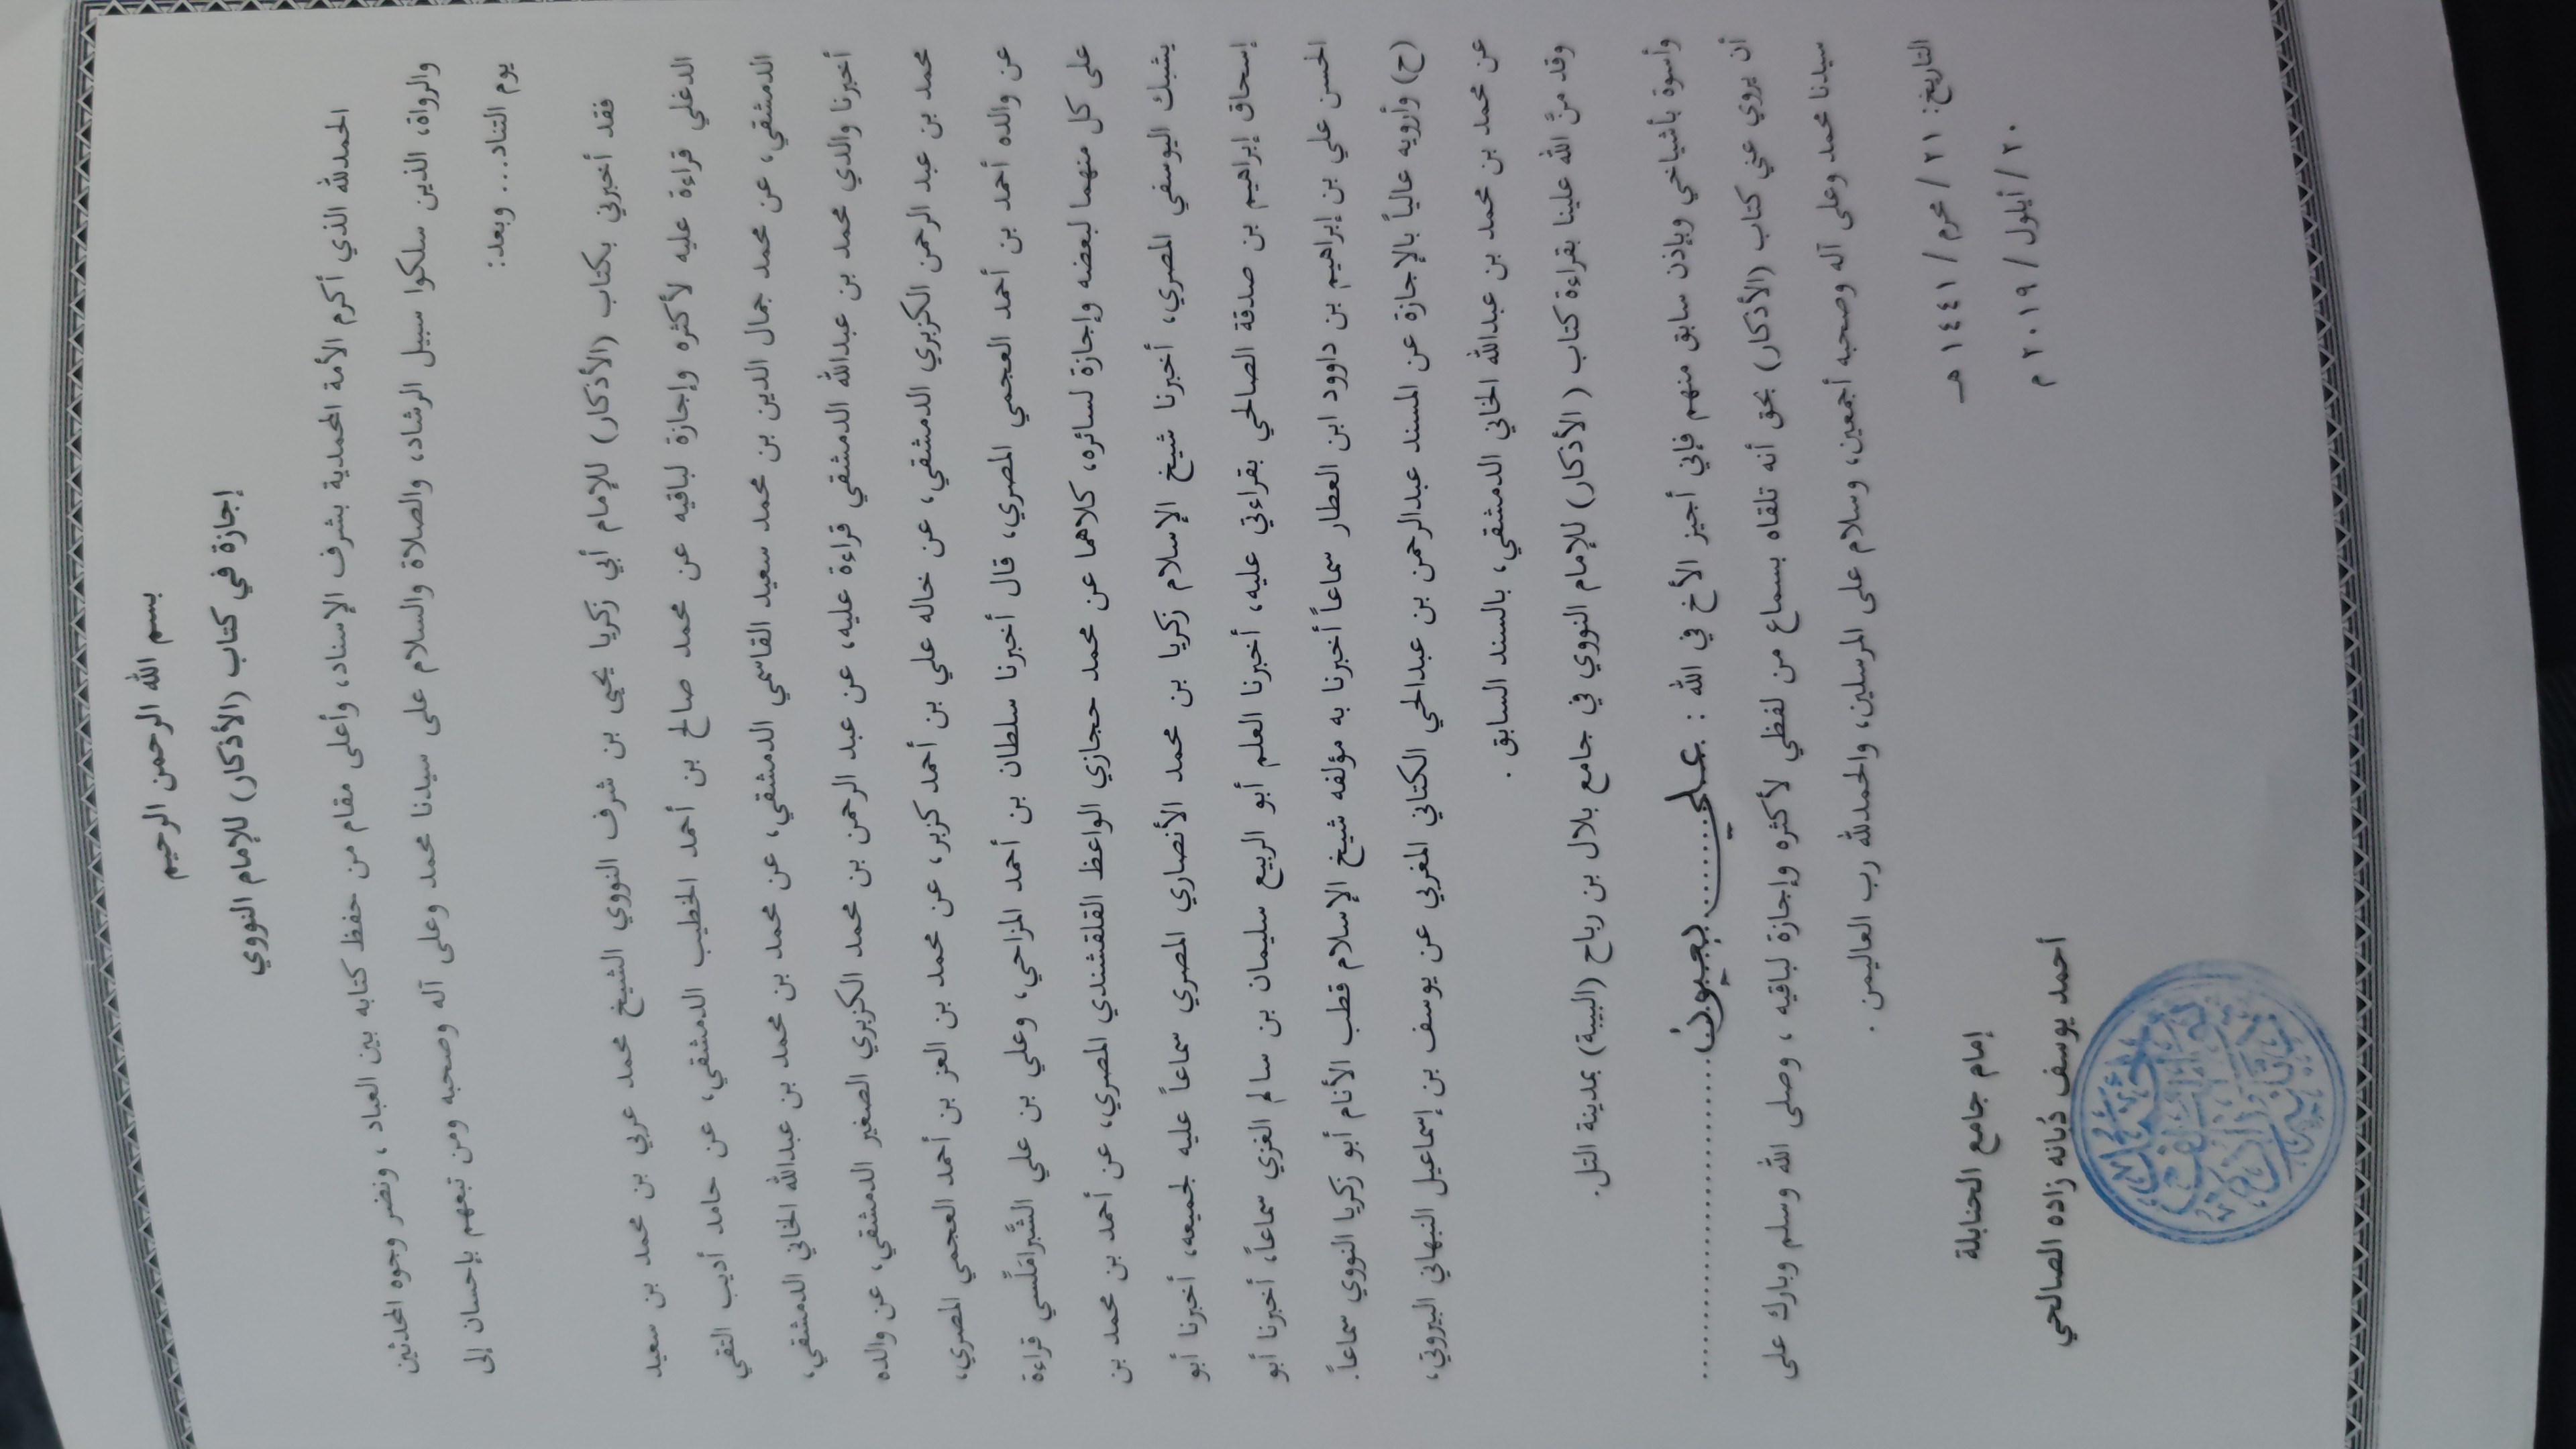 بسم الله الرحمن الرحيم
إجازة في كتاب (الأذكار) للإمام النووي
الحمدلله الذي أكرم الأمة المحمدية بشرف الإسناد، وأعلى مقام من حفظ كتابه بين العباد ، ونضر وجوه المحدثين
والرواة، الذين سلكوا سبيل الرشاد، والصلاة والسلام على سيدنا محمد وعلى آله وصحبه ومن تبعهم بإحسان إلى
يوم التناد... وبعد:
فقد أخبرني بكتاب (الأذكار) للإمام أبي زكريا يحيى بن شرف النووي الشيخ محمد عربي بن محمد بن سعيد
الدغلي قراءة عليه لأكثره وإجازة لباقيه عن محمد صالح بن أحمد الخطيب الدمشقي، عن حامد أديب التقي
الدمشقي، عن محمد جمال الدين بن محمد سعيد القاسمي الدمشقي، عن محمد بن محمد بن عبدالله الخاني الدمشقي،
أخبرنا والدي محمد بن عبدالله الدمشقي قراءة عليه، عن عبد الرحمن بن محمد الكزبري الصغير الدمشقي، عن والده
محمد بن عبد الرحمن الكزبري الدمشقي، عن خاله علي بن أحمد كزبر، عن محمد بن العز بن أحمد العجمي المصري،
عن والده أحمد بن أحمد العجمي المصري، قال أخبرنا سلطان بن أحمد المزاحي، وعلي بن علي الشَّبْرامَلِّسي قراءة
على كل منهما لبعضه وإجازة لسائره، كلاهما عن محمد حجازي الواعظ القلقشندي المصري، عن أحمد بن محمد بن
يشبك اليوسفي المصري، أخبرنا شيخ الإسلام زكريا بن محمد الأنصاري المصري سماعاً عليه لجميعه، أخبرنا أبو
إسحاق إبراهيم بن صدقة الصالحي بقراءتي عليه، أخبرنا العلم أبو الربيع سليمان بن سالم الغزي سماعاً، أخبرنا أبو
الحسن علي بن إبراهيم بن داوود ابن العطار سماعاً أخبرنا به مؤلفه شيخ الإسلام قطب الأنام أبو زكريا النووي سماعاً.
(ح) وأرويه عالياً بالإجازة عن المسند عبدالرحمن بن عبدالحي الكتاني المغربي عن يوسف بن إسماعيل النبهاني البيروتي،
عن محمد بن محمد بن عبدالله الخاني الدمشقي، بالسند السابق .
وقد منَّ الله علينا بقراءة كتاب ( الأذكار) للإمام النووي في جامع بلال بن رباح (البيبة) بمدينة التل.
وأسوة بأشياخي وبإذن سابق منهم فإني أجيز الأخ في الله : علي بعيون
أن يروي عني كتاب (الأذكار) بحق أنه تلقاه بسماع من لفظي لأكثره وإجازة لباقيه ، وصلى الله وسلم وبارك على
سيدنا محمد وعلى آله وصحبه أجمعين، وسلام على المرسلين، والحمدلله رب العاليمن .
التاريخ: ٢١ / محرم / ١٤٤١ هـ
٢٠ / أيلول / ٢٠١٩ م
إمام جامع الحنابلة
أحمد يوسف دُبانه زاده الصالحي